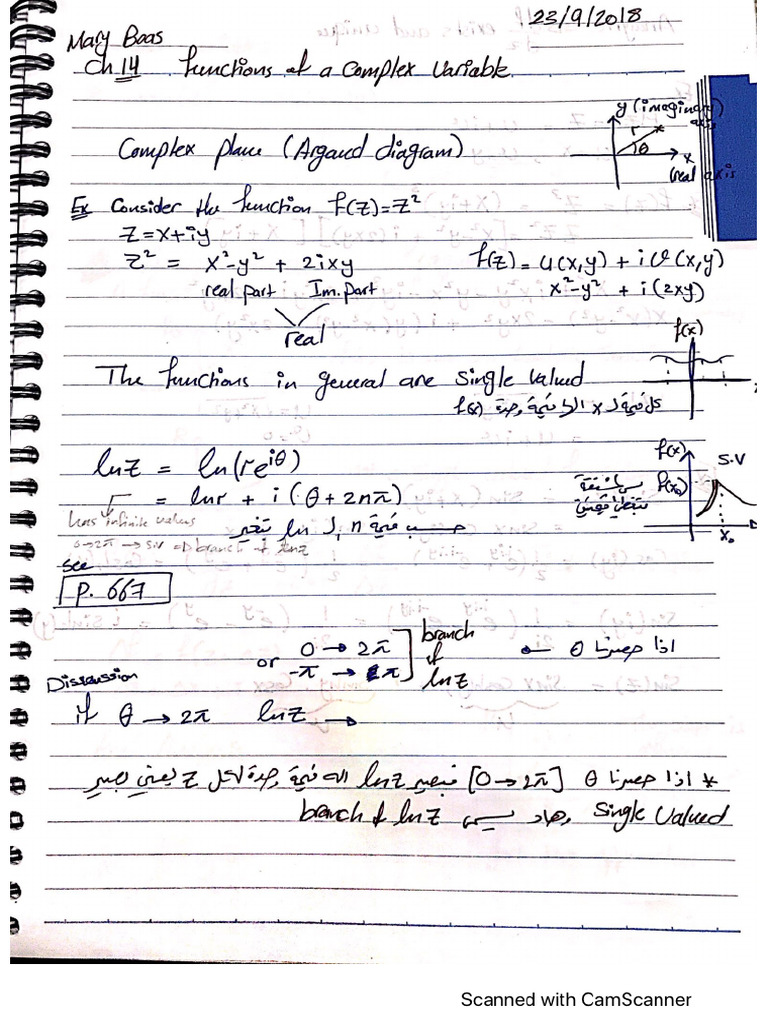 23/9/2018
Mary Boas
Ch 14 Functions of a Complex Variable
Complex plane (Argand diagram)
y (imaginary axis
r
θ
x
(real axis
Ex Consider the function f(z)=z²
z=x+iy
z² = x²-y² + 2ixy
real part Im.part
real
f(z) = u(x,y) + i v(x,y)
x²-y² + i(2xy)
f(x)
The functions in general are Single Valued
كل قيمة لـ x الها قيمة وحدة f(x)
f(x)
S.V
f(x₀)
x₀
lnz = ln(re^iθ)
= lnr + i(θ+2nπ)
has infinite values
حسب قيمة n الـ ln بتغير
0→2π → S.V branch of lnz
see
P. 667
اذا حصرنا θ
0 → 2π
or -π → π
branch of lnz
Discussion
if θ → 2π lnz →
* اذا حصرنا θ [0→2π] فبصير lnz اله قيمة وحدة لكل z يعني بصير
Single Valued وهاد بسمى branch of lnz
Scanned with CamScanner